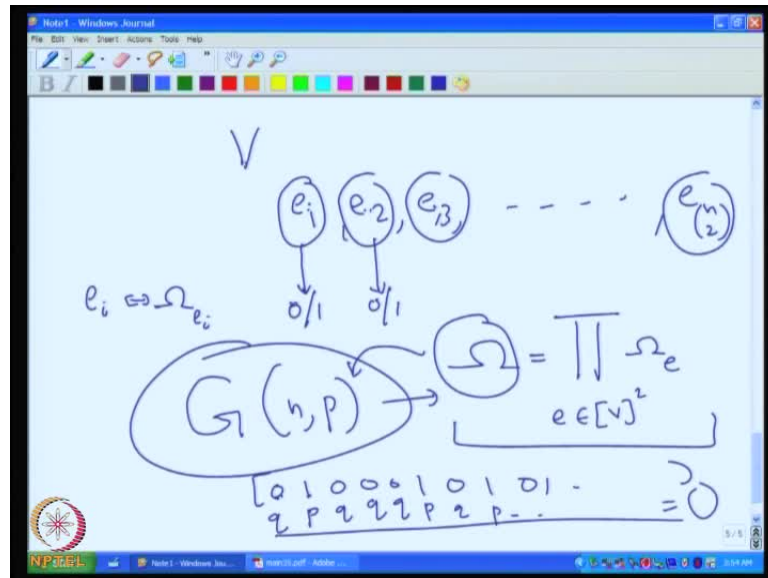 Note1 - Windows Journal
File Edit View Insert Actions Tools Help
B I
V
e_1, e_2, e_3, - - - - , e_(n 2)
e_i ⇔ Ω_{e_i} 0/1 0/1
G(n,p) → Ω = ∏ Ω_e
e ∈ [V]^2
[0 1 0 0 0 1 0 1 01 -
q p q q q p q p - - = 0
5/5
NPTEL Note1 - Windows Jou... main35.pdf - Adobe ... 2:54 AM